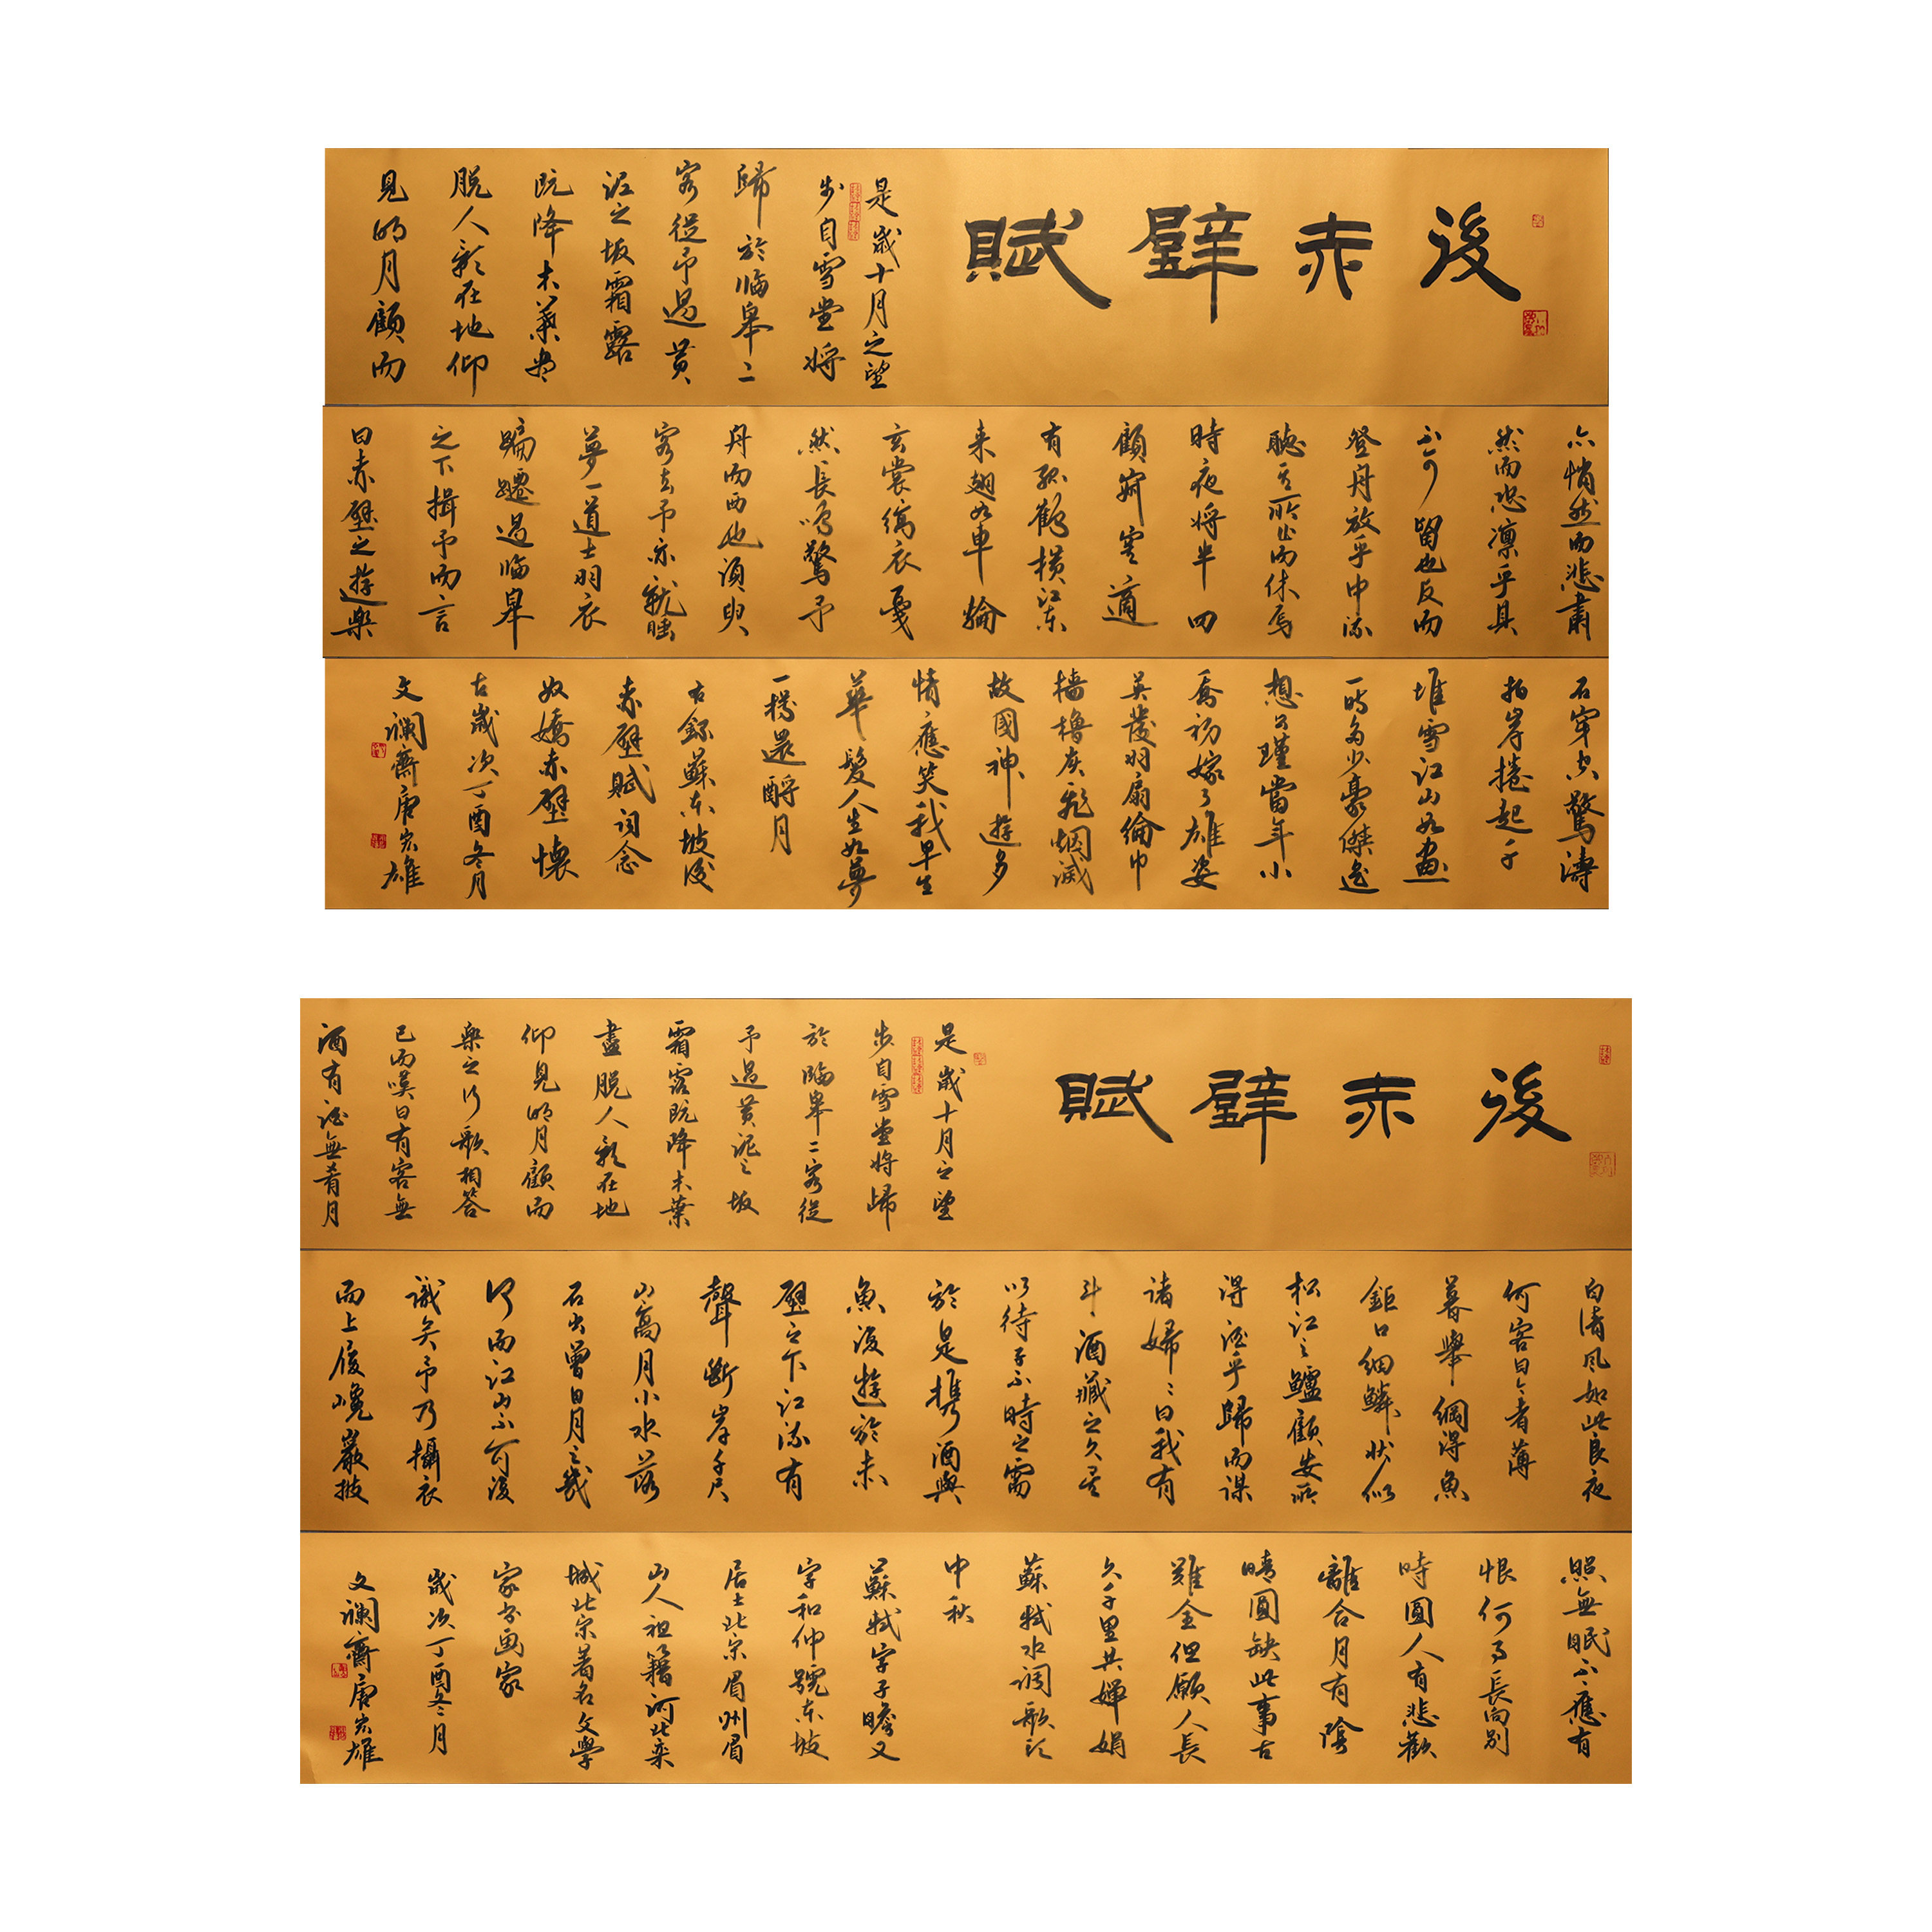 後赤壁賦
是歲十月之望
步自雪堂將
歸於臨皋二
客從予過黃
泥之坂霜露
既降木葉盡
脫人影在地仰
見明月顧而
亦悄然而悲肅
然而恐凜乎其
不可留也反而
登舟放乎中流
聽其所止而休焉
時夜將半四
顧寂寥適
有孤鶴橫江東
来翅如車輪
玄裳縞衣戛
然長鳴驚予
舟而西也須臾
客去予亦就睡
夢一道士羽衣
蹁躚過臨皋
之下揖予而言
曰赤壁之遊樂
石穿空驚濤
拍岸捲起千
堆雪江山如畫
一時多少豪傑遙
想公瑾當年小
喬初嫁了雄姿
英發羽扇綸巾
檣櫓灰飛烟滅
故國神遊多
情應笑我早生
華髮人生如夢
一樽還酹月
右錄蘇東坡後
赤壁賦詞念
奴嬌赤壁懷
古歲次丁酉冬月
文斕齋唐宏雄
後赤壁賦
是歲十月之望
步自雪堂將歸
於臨皋二客從
予過黃泥之坂
霜露既降木葉
盡脫人影在地
仰見明月顧而
樂之行歌相答
已而嘆曰有客無
酒有酒無肴月
白清风如此良夜
何客曰今者薄
暮舉網得魚
鉅口細鱗狀似
松江之鱸顧安所
得酒乎歸而謀
諸婦婦曰我有
斗酒藏之久矣
以待子不時之需
於是攜酒與
魚復遊於赤
壁之下江流有
聲斷岸千尺
山高月小水落
石出曾日月之幾
何而江山不可復
識矣予乃攝衣
而上履巉巖披
照無眠不應有
恨何事長向别
時圓人有悲歡
離合月有陰
晴圓缺此事古
難全但願人長
久千里共嬋娟
蘇軾水調歌頭
中秋
蘇軾字子瞻又
字和仲號東坡
居士北宋眉州眉
山人祖籍河北栾
城北宋著名文學
家书画家
歲次丁酉冬月
文斕齋唐宏雄